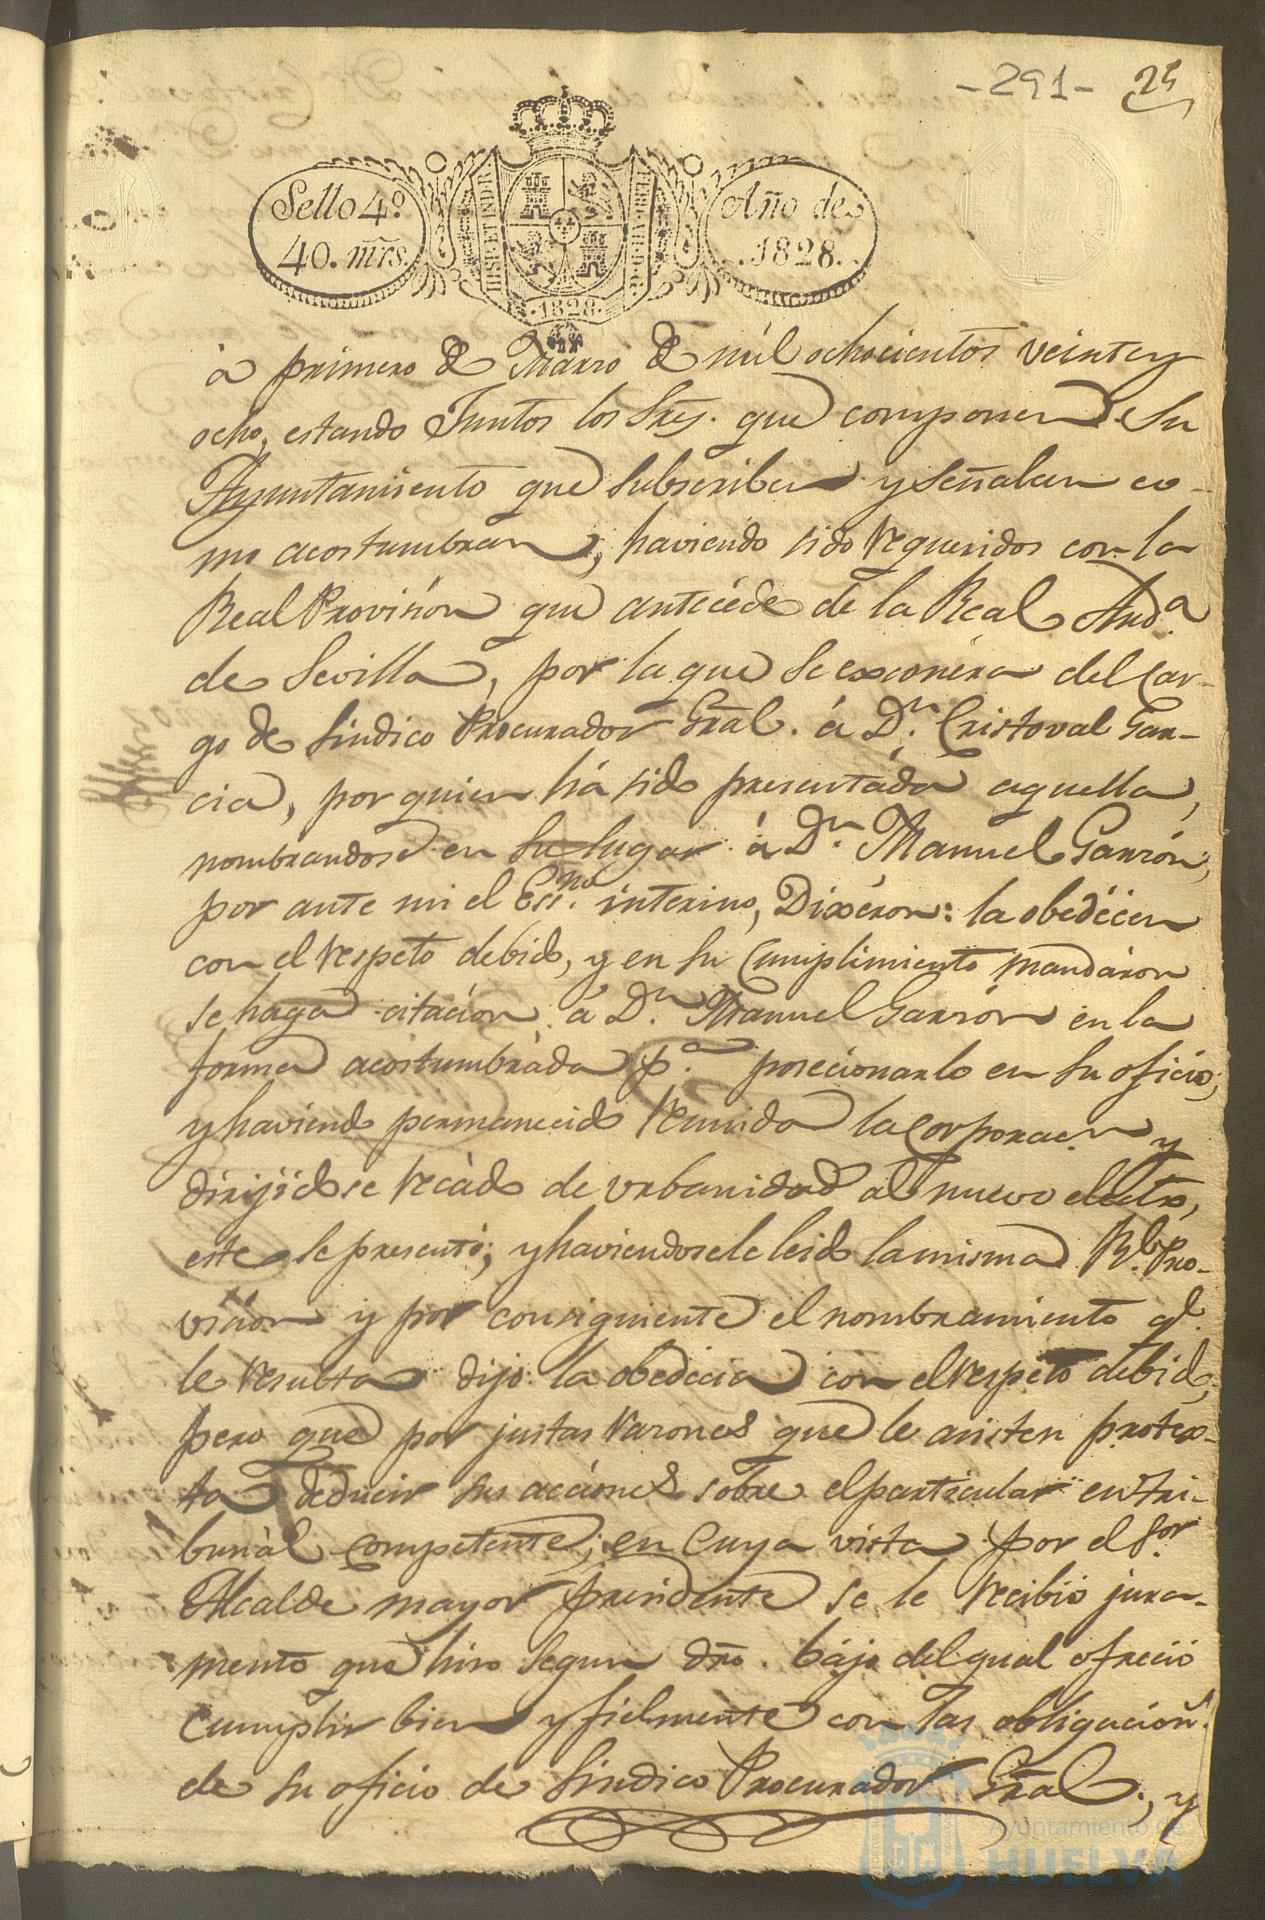 -291- 25
Sello 4º. 40. mrs.
HISP. ET IND. R. 1828.
Año de 1828.
à primero de Marzo de mil ochocientos veinte y
ocho, estando Juntos los Sres. que componen su
Ayuntamiento que subscriben y señalan co-
mo acostumbran, haviendo sido requeridos con la
Real Provisión que antecéde de la Real Auda.
de Sevilla, por la que se exonéra del Car-
go de Síndico Procurador Gral. á Dn. Cristoval Gar-
cia, por quien há sido presentáda aquella,
nombrandose en su lugar á Dn. Manuel Garzón,
por ante mi el Essno. interino, Dixéron: la obedécen
con el respeto debido, y en su Cumplimiento mandáron
se haga citación á Dn. Manuel Garzón en la
forma acostumbráda pa. posecionarlo en su oficio;
y haviendo permanecido reunida la Corporacn. y
dirijidose recádo de urbanidad al nuevo electo,
este se presentó; y haviendosele leido la misma Rl. Pro-
visión y por consiguiente el nombramiento ql.
le resulta dijo: la obedecia con el respeto debido,
pero que por justas razones que le asisten protex-
ta deducir sus acciónes sobre el particular en Tri-
bunál Competente; en cuya vista por el Sor.
Alcalde mayor presidente se le recibió jura-
mento que hizo segun dro. bájo del qual ofreció
cumplir bien y fielmente con las obligación.s
de su oficio de Síndico Procurador Gral., y
Ayuntamiento de
HUELVA